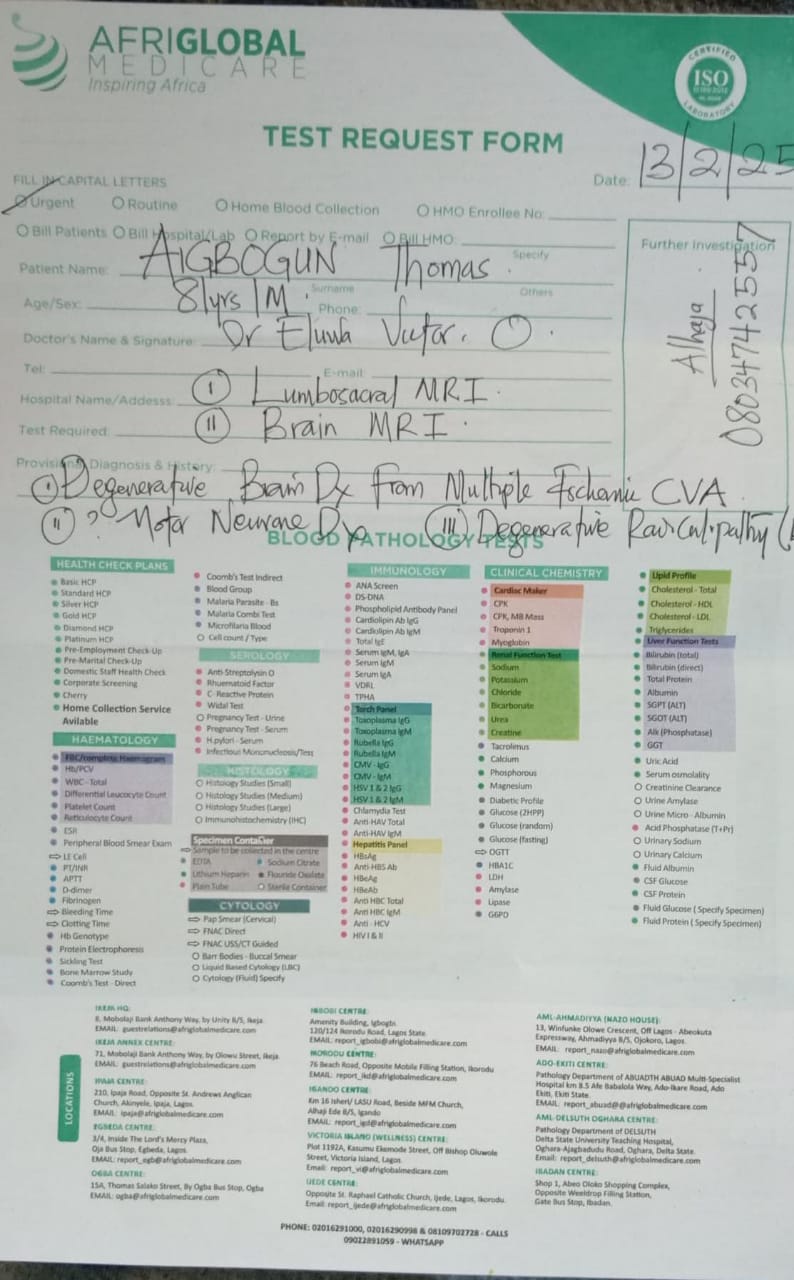 AFRIGLOBAL
MEDICARE
Inspiring Africa
CERTIFIED
ISO
LABORATORY
TEST REQUEST FORM
Date: 13/2/25
FILL IN CAPITAL LETTERS
Urgent Routine Home Blood Collection HMO Enrollee No:
Bill Patients Bill Hospital/Lab Report by E-mail Bill HMO:
Specify
Further Investigation
Alhaja
08034742557
Patient Name: AIGBOGUN Thomas
Surname Others
Age/Sex: 81yrs/M Phone:
Doctor's Name & Signature: Dr Eluwa Victor.
Tel: E-mail:
Hospital Name/Addesss: (I) Lumbosacral MRI.
Test Required: (II) Brain MRI.
Provisional Diagnosis & History:
(I) Degenerative Brain Dx from Multiple Ischemic CVA
(II) ? Motor Neurone Dx (III) Degenerative Radiculopathy
BLOOD PATHOLOGY TESTS
HEALTH CHECK PLANS
Basic HCP
Standard HCP
Silver HCP
Gold HCP
Diamond HCP
Platinum HCP
Pre-Employment Check-Up
Pre-Marital Check-Up
Domestic Staff Health Check
Corporate Screening
Cherry
Home Collection Service
Avilable
HAEMATOLOGY
FBC/complete Haemogram
Hb/PCV
WBC - Total
Differential Leucocyte Count
Platelet Count
Reticulocyte Count
ESR
Peripheral Blood Smear Exam
LE Cell
PT/INR
APTT
D-dimer
Fibrinogen
Bleeding Time
Clotting Time
Hb Genotype
Protein Electrophoresis
Sickling Test
Bone Marrow Study
Coomb's Test - Direct
Coomb's Test Indirect
Blood Group
Malaria Parasite - Bs
Malaria Combi Test
Microfilaria Blood
Cell count / Type
SEROLOGY
Anti-Streptolysin O
Rhuematoid Factor
C-Reactive Protein
Widal Test
Pregnancy Test - Urine
Pregnancy Test - Serum
H.pylori - Serum
Infectious Mononucleosis/Test
HISTOLOGY
Histology Studies (Small)
Histology Studies (Medium)
Histology Studies (Large)
Immunohistochemistry (IHC)
Specimen Container
Sample to be collected in the centre
EDTA Sodium Citrate
Lithium Heparin Flouride Oxalate
Plain Tube Sterile Container
CYTOLOGY
Pap Smear (Cervical)
FNAC Direct
FNAC USS/CT Guided
Barr Bodies - Buccal Smear
Liquid Based Cytology (LBC)
Cytology (Fluid) Specify
IMMUNOLOGY
ANA Screen
DS-DNA
Phospholipid Antibody Panel
Cardiolipin Ab IgG
Cardiolipin Ab IgM
Total IgE
Serum IgM, IgA
Serum IgM
Serum IgA
VDRL
TPHA
Torch Panel
Toxoplasma IgG
Toxoplasma IgM
Rubella IgG
Rubella IgM
CMV - IgG
CMV - IgM
HSV 1 & 2 IgG
HSV 1 & 2 IgM
Chlamydia Test
Anti-HAV Total
Anti-HAV IgM
Hepatitis Panel
HBsAg
Anti-HBS Ab
HBeAg
HBeAb
Anti HBC Total
Anti HBC IgM
Anti - HCV
HIV I & II
CLINICAL CHEMISTRY
Cardiac Maker
CPK
CPK, MB Mass
Troponin 1
Myoglobin
Renal Function Test
Sodium
Potassium
Chloride
Bicarbonate
Urea
Creatine
Tacrolimus
Calcium
Phosphorous
Magnesium
Diabetic Profile
Glucose (2HPP)
Glucose (random)
Glucose (fasting)
OGTT
HBA1C
LDH
Amylase
Lipase
G6PD
Lipid Profile
Cholesterol - Total
Cholesterol - HDL
Cholesterol - LDL
Triglycerides
Liver Function Tests
Bilirubin (total)
Bilirubin (direct)
Total Protein
Albumin
SGPT (ALT)
SGOT (ALT)
Alk (Phosphatase)
GGT
Uric Acid
Serum osmolality
Creatinine Clearance
Urine Amylase
Urine Micro - Albumin
Acid Phosphatase (T+Pr)
Urinary Sodium
Urinary Calcium
Fluid Albumin
CSF Glucose
CSF Protein
Fluid Glucose ( Specify Specimen)
Fluid Protein ( Specify Specimen)
LOCATIONS
IKEJA HQ:
8, Mobolaji Bank Anthony Way, by Unity B/S, Ikeja
EMAIL: guestrelations@afriglobalmedicare.com
IKEJA ANNEX CENTRE:
71, Mobolaji Bank Anthony Way, by Olowu Street, Ikeja.
EMAIL: guestrelations@afriglobalmedicare.com
IPAJA CENTRE:
210, Ipaja Road, Opposite St. Andrews Anglican
Church, Akinyele, Ipaja, Lagos.
EMAIL: ipaja@afriglobalmedicare.com
EGBEDA CENTRE:
3/4, Inside The Lord's Mercy Plaza,
Oja Bus Stop, Egbeda, Lagos.
EMAIL: report_egb@afriglobalmedicare.com
OGBA CENTRE:
15A, Thomas Salako Street, By Ogba Bus Stop, Ogba
EMAIL: ogba@afriglobalmedicare.com
IGBOBI CENTRE:
Amenity Building, Igbogbi
120/124 Ikorodu Road, Lagos State.
EMAIL: report_igbobi@afriglobalmedicare.com
IKORODU CENTRE:
76 Beach Road, Opposite Mobile Filling Station, Ikorodu
EMAIL: report_ikd@afriglobalmedicare.com
IGANDO CENTRE:
Km 16 Isheri/ LASU Road, Beside MFM Church,
Alhaji Ede B/S, Igando
EMAIL: report_igd@afriglobalmedicare.com
VICTORIA ISLAND (WELLNESS) CENTRE:
Plot 1192A, Kasumu Ekemode Street, Off Bishop Oluwole
Street, Victoria Island, Lagos.
Email: report_vi@afriglobalmedicare.com
IJEDE CENTRE:
Opposite St. Raphael Catholic Church, Ijede, Lagos, Ikorodu.
Email: report_ijede@afriglobalmedicare.com
AML-AHMADIYYA (NAZO HOUSE):
13, Winfunke Olowe Crescent, Off Lagos - Abeokuta
Expressway, Ahmadiyya B/S, Ojokoro, Lagos.
EMAIL: report_nazo@afriglobalmedicare.com
ADO-EKITI CENTRE:
Pathology Department of ABUADTH ABUAD Multi-Specialist
Hospital km 8.5 Afe Babalola Way, Ado-Ikare Road, Ado
Ekiti, Ekiti State.
EMAIL: report_abuad@@afriglobalmedicare.com
AML-DELSUTH OGHARA CENTRE:
Pathology Department of DELSUTH
Delta State University Teaching Hospital,
Oghara-Ajagbadudu Road, Oghara, Delta State.
Email: report_delsuth@afriglobalmedicare.com
IBADAN CENTRE:
Shop 1, Abeo Oloko Shopping Complex,
Opposite Weeldrop Filling Station,
Gate Bus Stop, Ibadan.
PHONE: 02016291000, 02016290998 & 08109702728 - CALLS
09022891059 - WHATSAPP